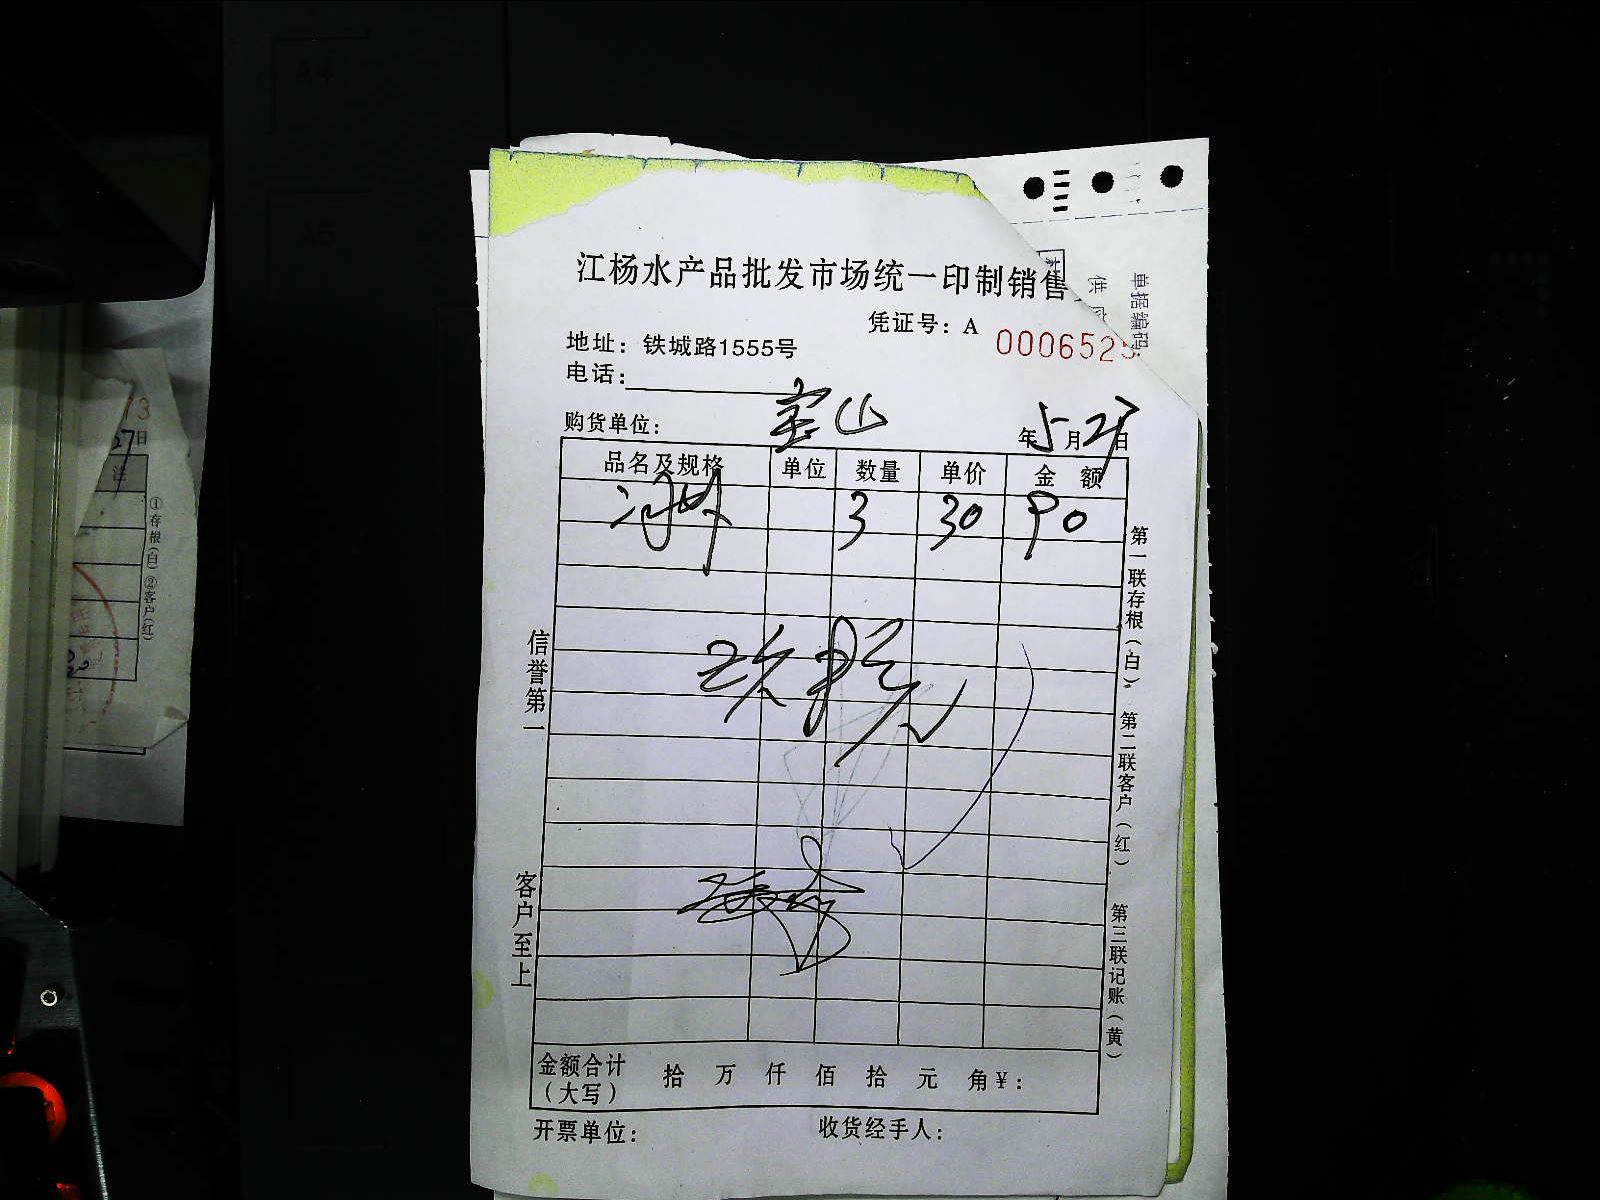 江杨水产品批发市场统一印制销售
凭证号：A 000652
地址：铁城路1555号
电话：
购货单位： 宝山 年5月27日
品名及规格 单位 数量 单价 金 额
3 30 90
玖拾元
信誉第一
客户至上
第一联存根（白） 第二联客户（红） 第三联记账（黄）
金额合计（大写） 拾 万 仟 佰 拾 元 角 ¥：
开票单位： 收货经手人：
单据编码：
供
27日
①存根（白）②客户（红）